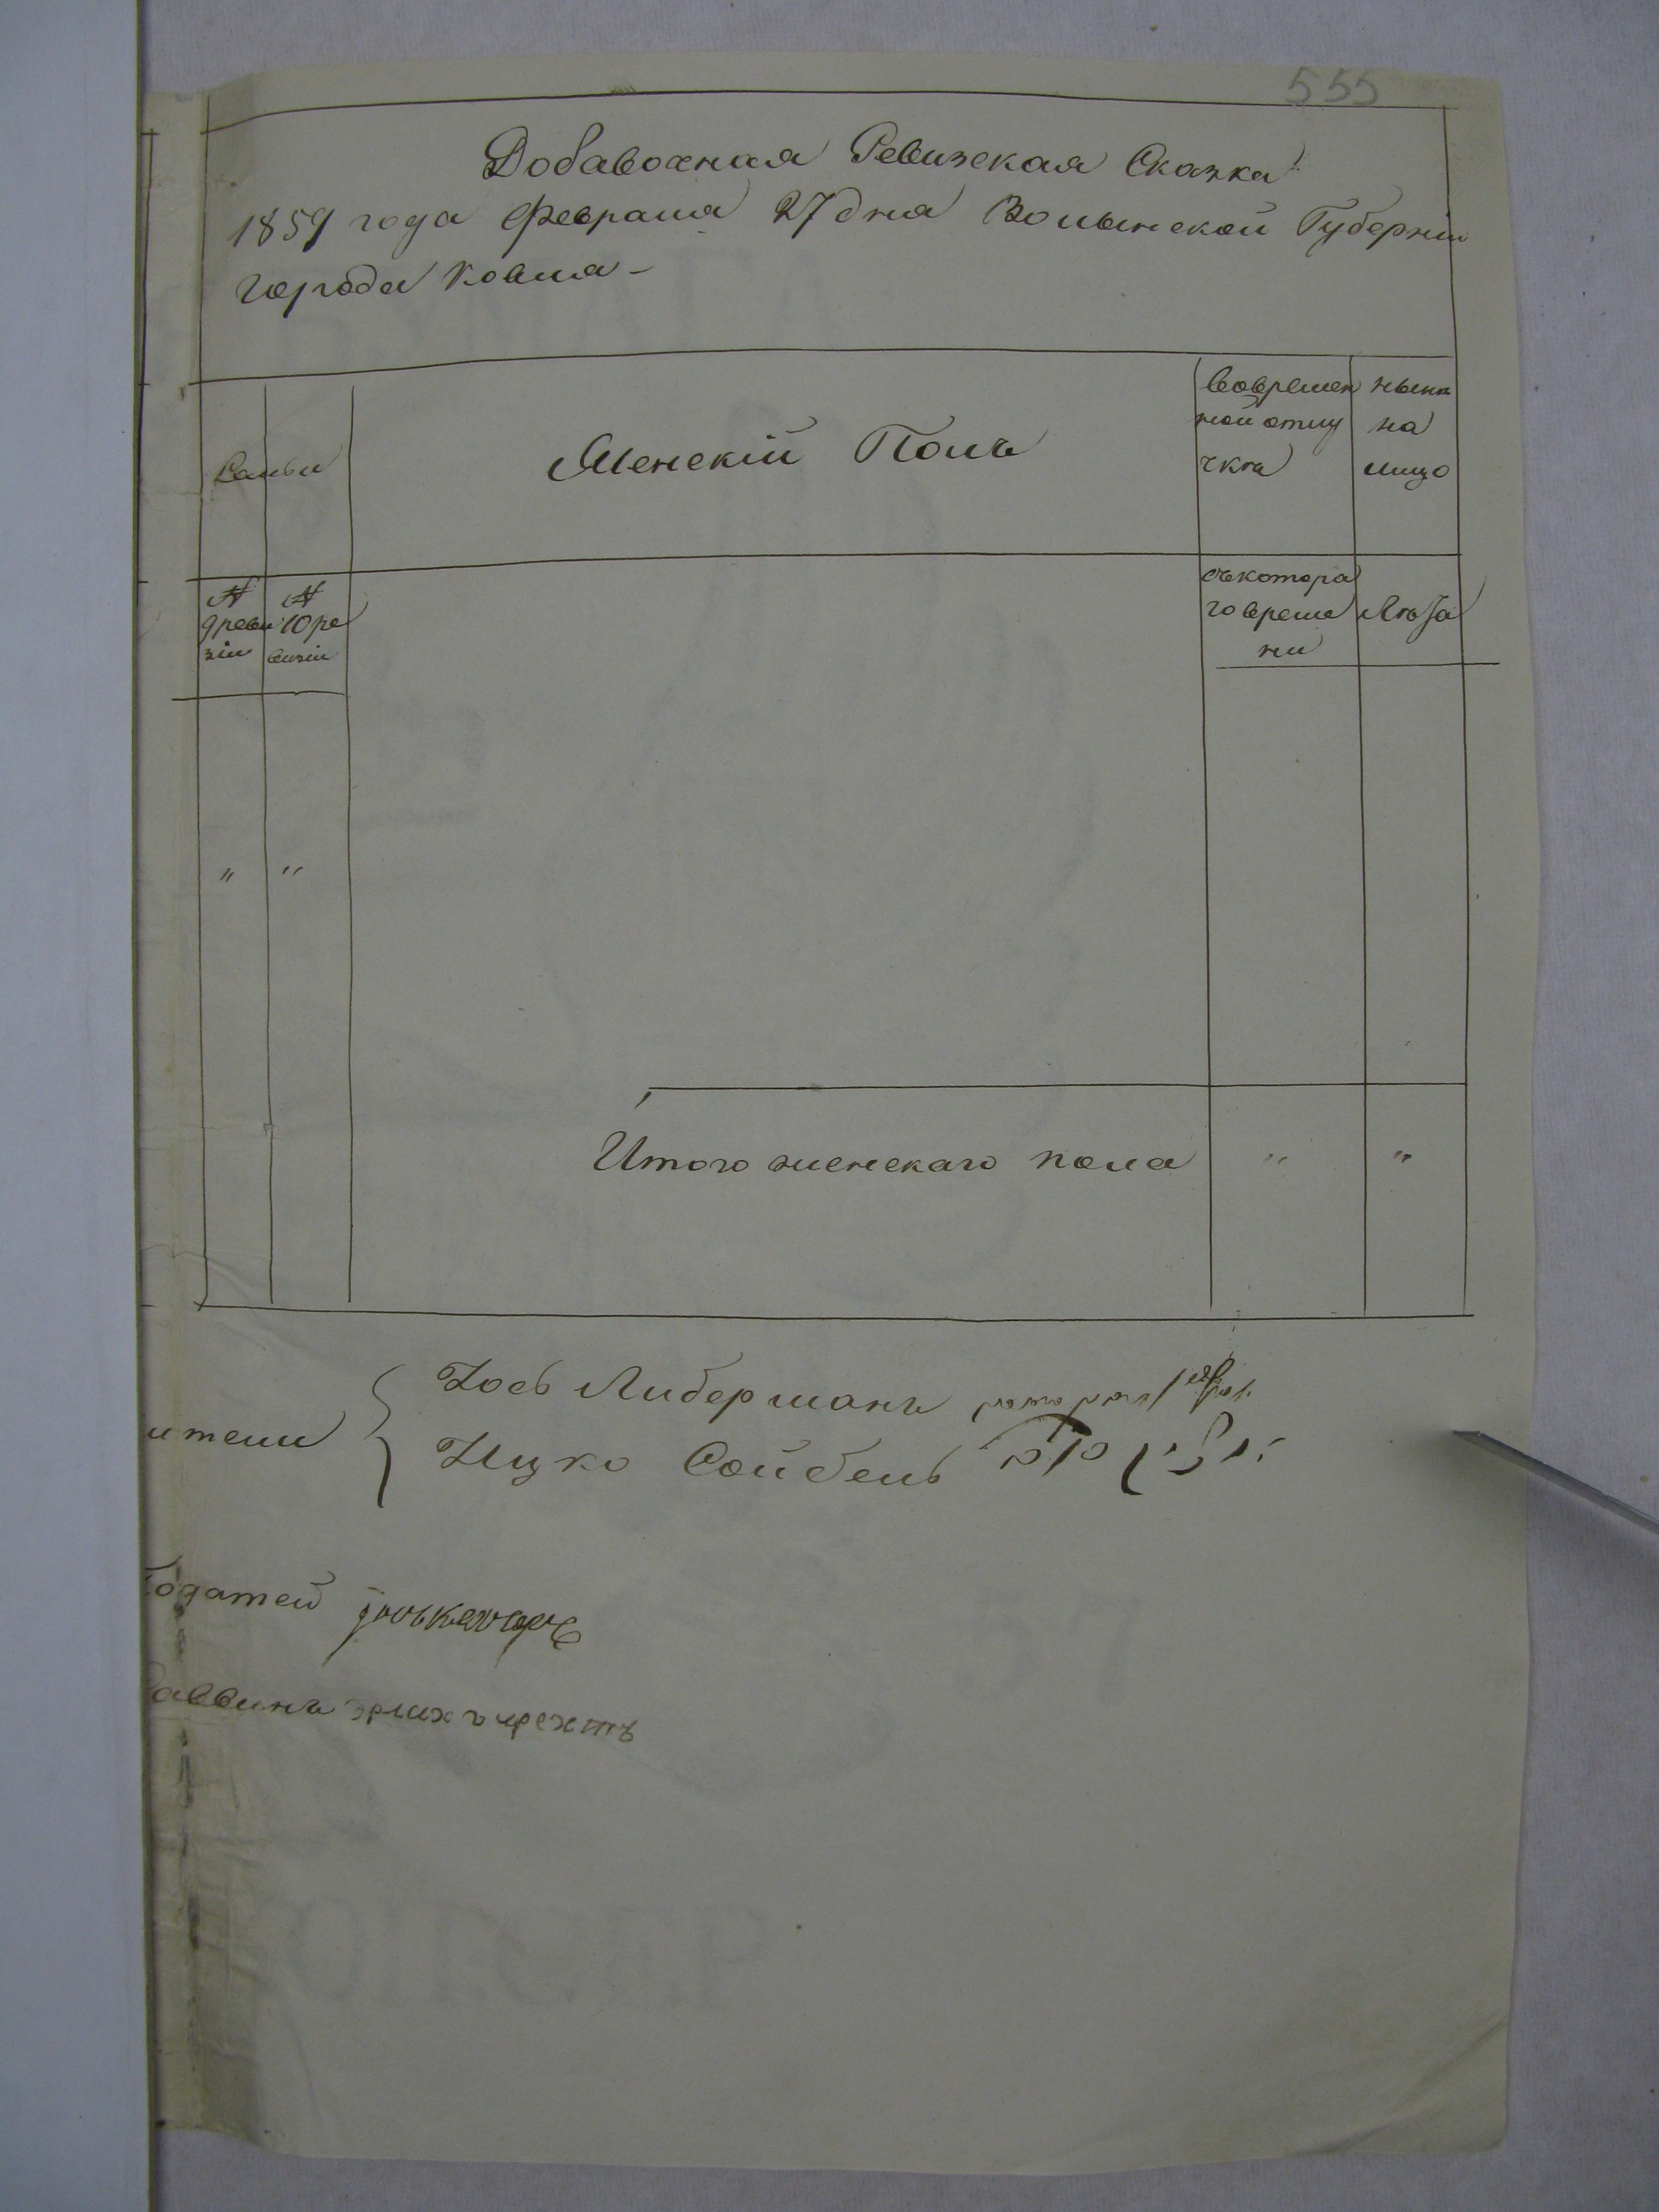 555
Добавочная Ревизская Сказка
1859 года Февраля 27 дня Волынской Губерніи
Города Ковля
Семьи
Женскій Полъ
вовремен
ной отлу
чкѣ
нынѣ
на
лицо
№
9 реви
зіи
№
10 ре
визіи
съ котора
го време
ни
Лѣта
" "
Итого женскаго пола " "
ители
Іось Либерманъ
Ицко Сойбель
одатей
аввинъ